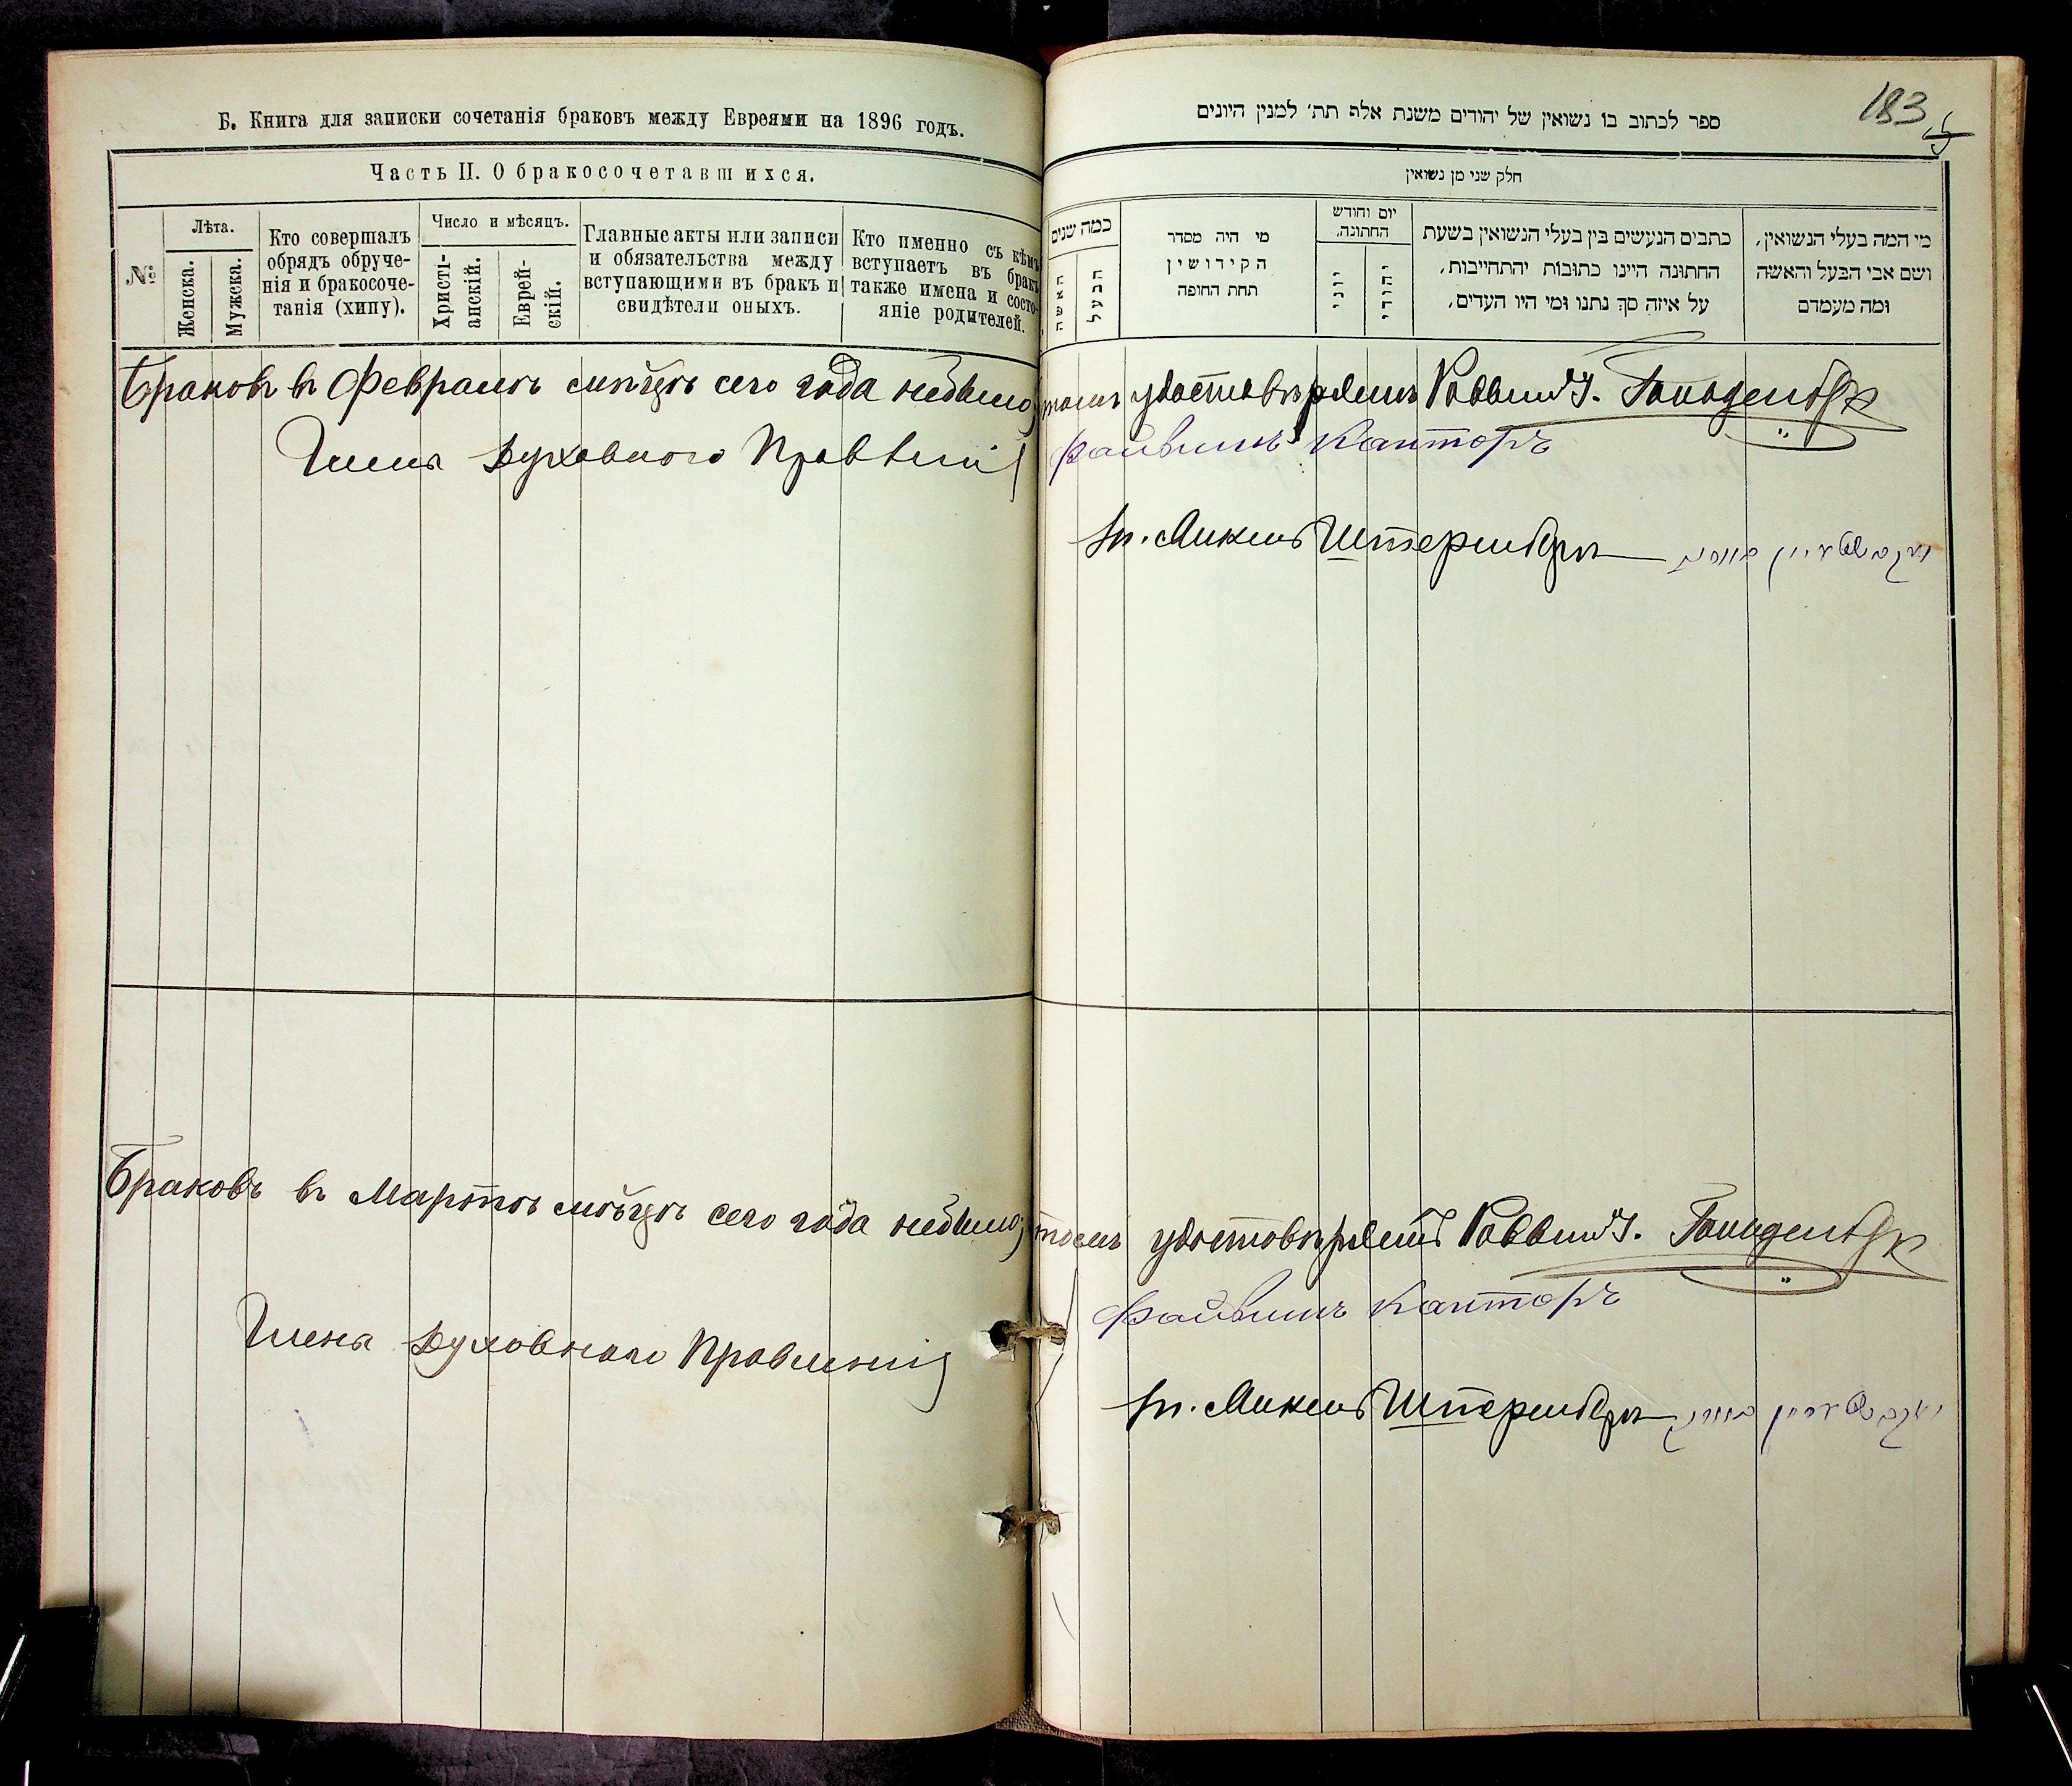 Б. Книга для записки сочетанія браковъ между Евреями на 1896 годъ.
Часть II. О бракосочетавшихся.
№
Лѣта.
Женска.
Мужска.
Кто совершалъ
обрядъ обруче-
нія и бракосоче-
танія (хипу).
Число и мѣсяцъ.
Христі-
анскій.
Еврей-
скій.
Главные акты или записи
и обязательства между
вступающими въ бракъ и
свидѣтели оныхъ.
Кто именно съ кѣмъ
вступаетъ въ бракъ
также имена и состо-
яніе родителей.
183
ספר לכתוב בו נשואין של יהודים משנת אלף תת׳ למנין היונים
חלק שני מן נשואין
כמה שנים
האשה
הבעל
מי היה מסדר
הקידושין
תחת החופה
יום וחודש
החתונה.
יוני
יהודי
כתבים הנעשים בין בעלי הנשואין בשעת
החתונה היינו כתובות יהתחייבות,
על איזה סך נתנו ומי היו העדים,
מי המה בעלי הנשואין,
ושם אבי הבעל והאשה
ומה מעמדם
Браковъ въ Февралѣ мѣсцѣ сего года небыло, въ томъ удостовѣряемъ Раввинъ Гольденберг
Члены Духовного Правленія Файвишъ Канторъ
Янкель Штернберг
Браковъ въ Мартѣ мѣсцѣ сего года небыло, въ томъ удостовѣряемъ Раввинъ Гольденберг
Члена Духовного Правленія Файвишъ Канторъ
Янкель Штернберг